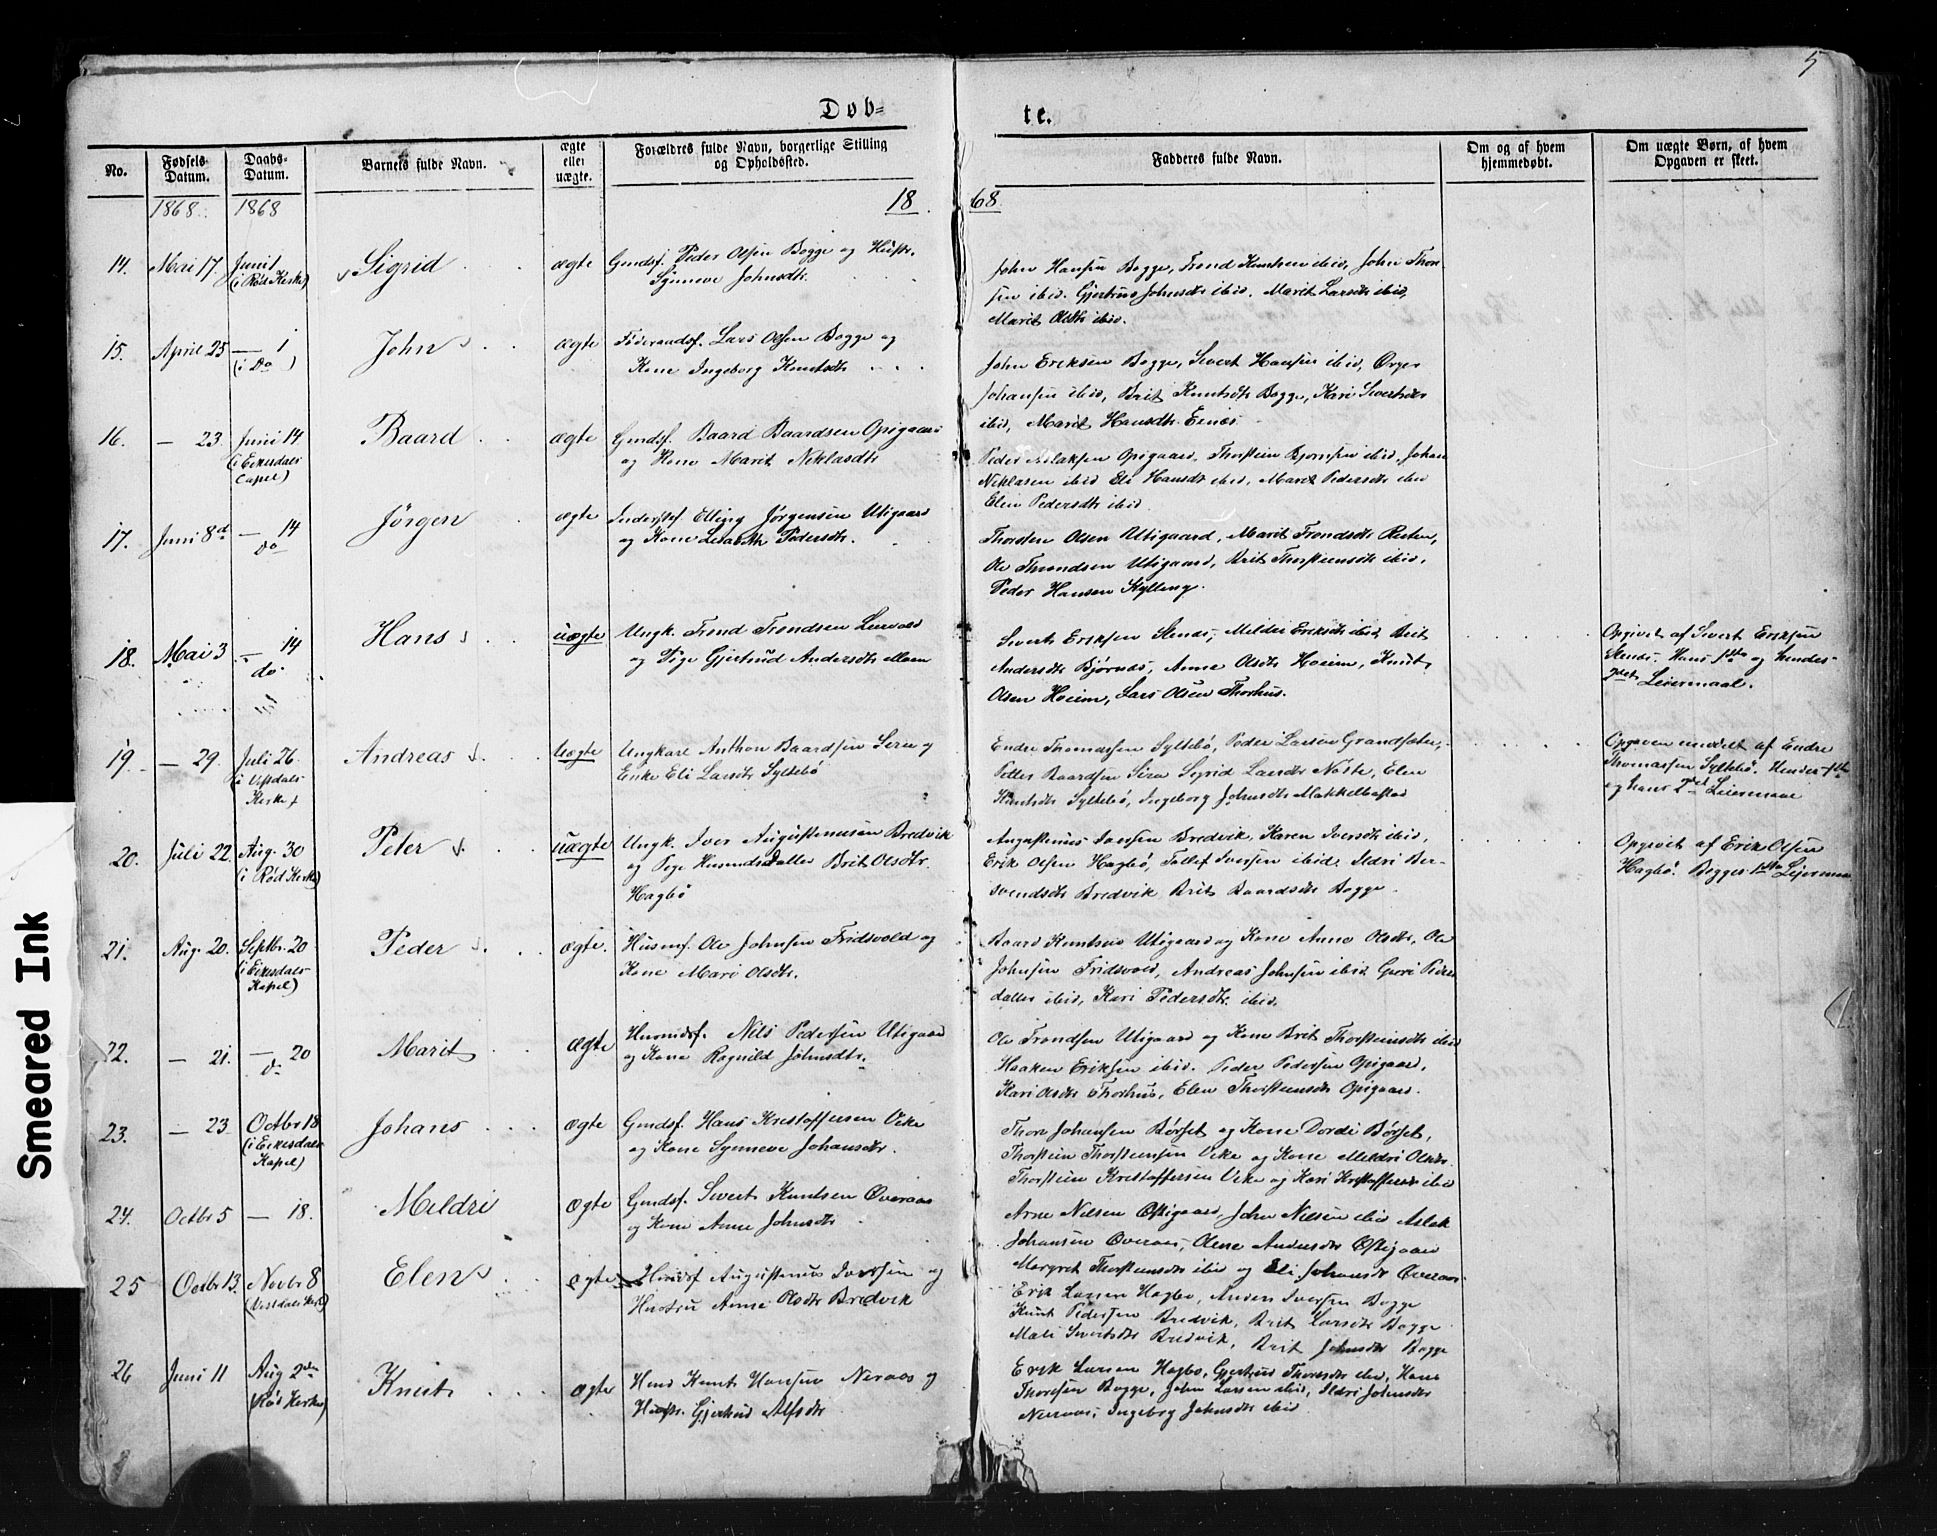 5
Döb=
te.
No.
Fødsels Datum.
Daabs-Datum.
Barnets fulde Navn.
ægte eller uægte.
Forældres fulde Navn, borgerlige Stilling og Opholdssted.
Faddernes fulde Navn.
Om og af hvem hjemmedøbt.
Om uægte Børn, af hvem Opgaven er skeet.
1868. 1868 18 68.
14. Mai 17. Juni 1 (i Rød Kirke) Sigrid ægte Gmdsf. Peder Olsen Bogge og Hustr.
Synneve Johnsdtr.
John Hansen Bogge, Trond Knutsen ibid, John Thor-
sen ibid. Gjertrud Johnsdtr ibid. Marit Larsdtr ibid,
Marit Olsdtr ibid.
15. April 25 — 1 (i Do) John ægte Føderaadsf. Lars Olsen Bogge og
Kone Ingeborg Knutsdtr
John Eriksen Bogge, Sivert Hansen ibid,
Johansen ibid, Brit Knutsdtr Bogge, Kari Sivertsdtr
ibid, Marit Hansdtr
16. — 23. Juni 14 (i Eikesdals Capel) Baard ægte Gmdsf. Baard Baardsen Opigaard
og Kone Marit Niklasdtr
Peder Aslaksen Opigaard, Thorstein Bjørnsen ibid, Johan
Niklasen ibid Eli Hansdtr ibid, Marit Pedersdtr ibid
Elen Pedersdtr ibid
17. Juni 8d — 14 do Jörgen ægte Inderstf. Elling Jörgensen Utigaard
og Kone Pedersdtr.
Thorsten Olsen Utigaard, Marit Trondsdtr
Ole Throndsen Utigaard, Brit Thorsteinsdtr ibid,
Peder Hansen Kylling.
18. Mai 3 — 14 do. Hans uægte Ungk. Trond Trondsen
og Pige Gjertrud Andersdtr Moen
Sivert Eriksen Stenes, Meldri Eriksdtr ibid, Brit
Andersdtr Bjørnes, Anne Olsdtr Hoeim, Knut
Olsen Hoeim, Lars Olsen Thorhus.
Opgivet af Sivert Eriksen
Stenes. Hans 1ste og hendes
Leiermaal.
19. — 29. Juli 26. (i Vistdals Kirke) Andreas Uægte Ungkarl Anthon Baardsen Sira og
Enke Eli Larsdtr Syltebö
Endre Thomassen Syltebö, Peder Larsen Grandsæter,
Petter Baardsen Sira Sigrid Larsdtr Nöste, Elen
Knutsdtr Syltebö, Ingeborg Johnsdtr
Opgaven meddelt af Endre
Thomassen Syltebö. Hendes 1ste
og hans 2det Leiermaal
20. Juli 22. Aug. 30 (i Rød Kirke) Peter uægte Ungk. Iver Augustinusen Bredvik
og Pige Brit Olsdtr.
Hagbö
Augustinus Iversen Bredvik, Karen Iversdtr ibid,
Erik Olsen Hagbö, Tollef Iversen ibid, Ildri Ber-
svendsdtr Bredvik Brit Baardsdtr Bogge.
Opgivet af Erik Olsen
Hagbö. Begges 1ste
21. Aug. 20. Septbr. 20 (i Eikesdals Kapel) Peder ægte. Husmf. Ole Johnsen Fridsvold og
Kone Mari Olsdtr.
Baard Knutsen Utigaard og Kone Anne Olsdtr, Ole
Johnsen Fridsvold, Andreas Johnsen ibid, Guri Peders-
datter ibid, Kari Pedersdtr ibid.
22. — 21. — 20 do Marit ægte Husmdsf. Nils Pedersen Utigaard
og Kone Ragnild Johnsdtr.
Ole Trondsen Utigaard og Kone Brit Thorsteinsdtr ibid
Haaken Eriksen ibid. Peder Pedersen Opigaard,
Kari Olsdtr Thorhus, Elen Thorsteinsdtr Opigaard.
23. — 23. Octbr 18 (i Eikesdals Kapel) Johans ægte Gmdsf. Hans Kristoffersen Vike
og Kone Synneve Johansdtr.
Thore Johansen Börset og Kone Dordi Börset,
Thorstein Thorsteinsen Vike og Kone Meldri Olsdtr.
Thorstein Kristoffersen Vike og Kari Kristoffersdtr ibid
24. Octbr 5 — 18. Meldri ægte Gmdsf. Sivert Knutsen Överaas
og Kone Anne Johnsdtr
Arne Nielsen Östigaard, John Nielsen ibid Aslak
Johansen Överaas, Olene Andersdtr Östigaard
Margret Thorsteinsdtr ibid og Eli Johansdtr Överaas
25 Octbr 13. Novbr 8 (Vistdals Kirk) Elen ægte Augustinus Iversen og
Hustru Anne Olsdtr Bredvik
Erik Larsen Hagbö, Anders Iversen Bogge
Knut Pedersen Bredvik, Brit Larsdtr Bogge
Mali Sivertsdtr Bredvik, Brit Johnsdtr Bogge
26 Juni 11 Aug 2den (Rød Kirke) Knut ægte Knut Hansen Neraas og
Hustr. Gjertrud Alfsdtr
Erik Larsen Hagbö, Gjertrud Thoresdtr ibid, Hans
Thoresen Bogge, John Larsen ibid, Ildri Johnsdtr
Neraas, Ingeborg Johnsdtr ibid
Smeared Ink